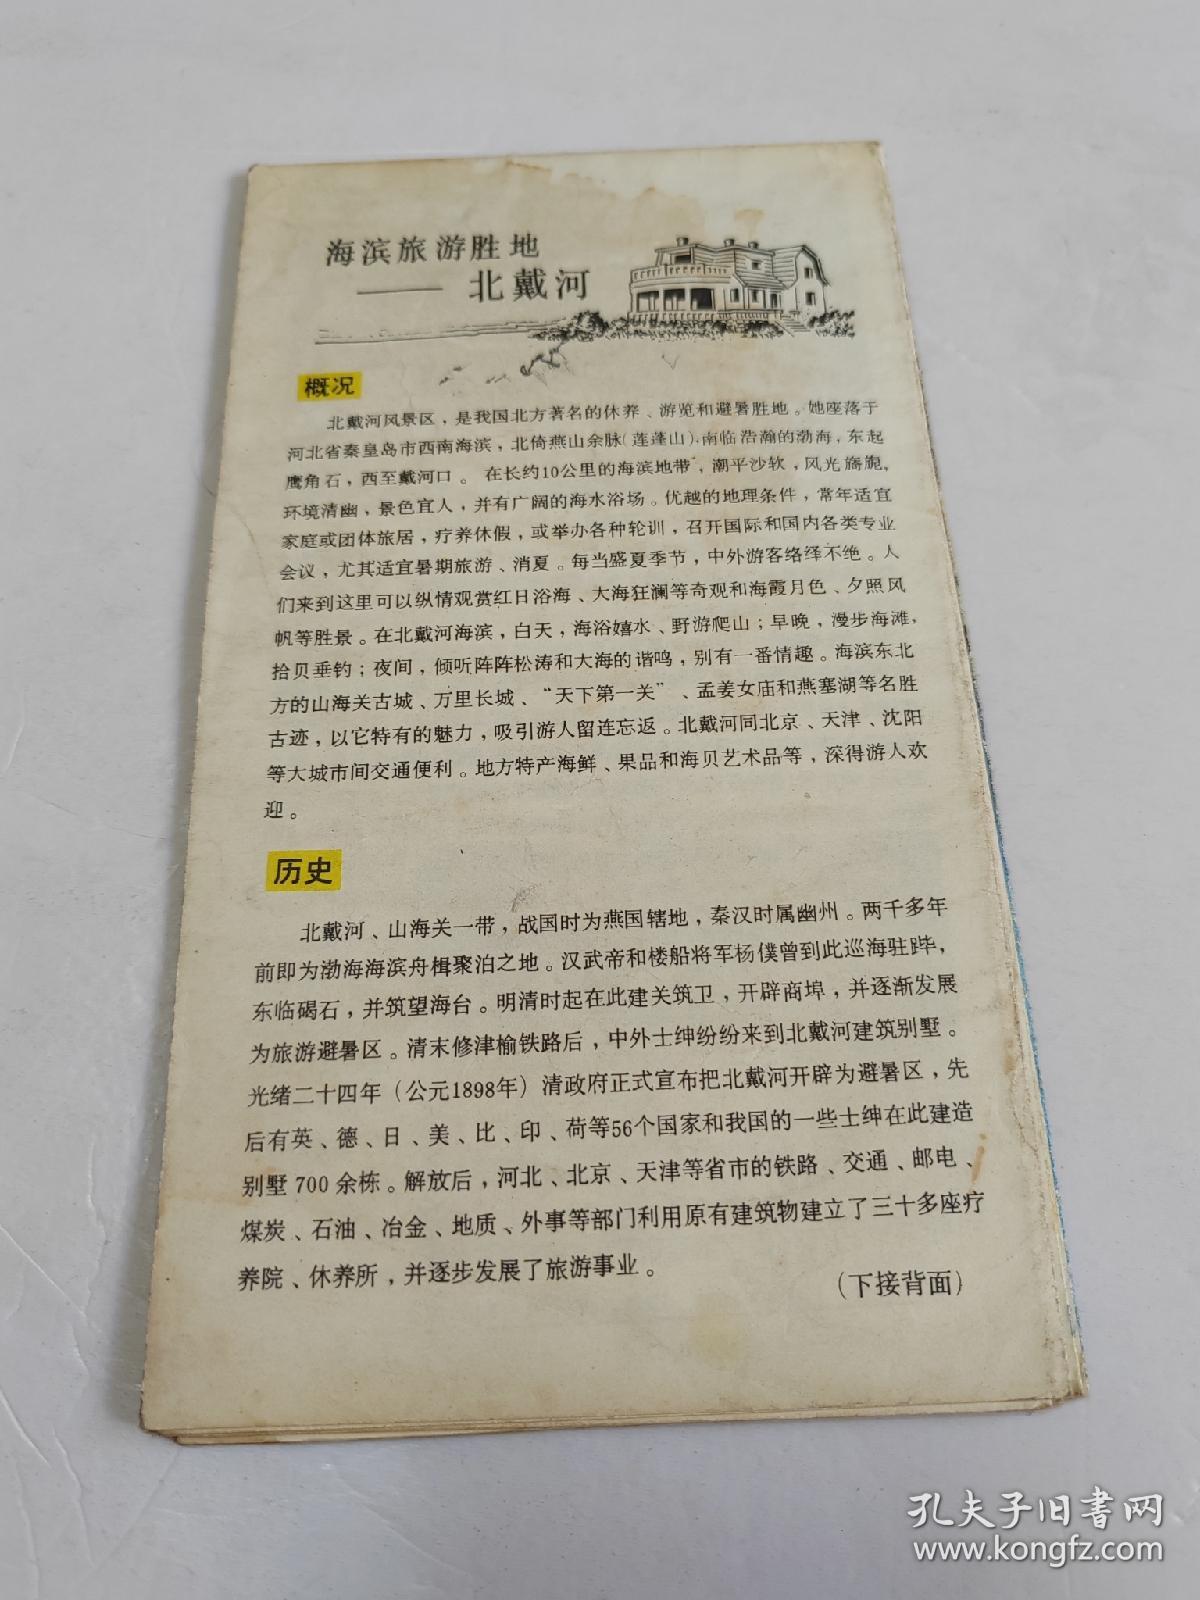 海滨旅游胜地
—— 北戴河
概况
北戴河风景区，是我国北方著名的休养、游览和避暑胜地。她座落于
河北省秦皇岛市西南海滨，北倚燕山余脉（莲蓬山），南临浩瀚的渤海，东起
鹰角石，西至戴河口。在长约10公里的海滨地带，潮平沙软，风光旖旎，
环境清幽，景色宜人，并有广阔的海水浴场。优越的地理条件，常年适宜
家庭或团体旅居，疗养休假，或举办各种轮训，召开国际和国内各类专业
会议，尤其适宜暑期旅游、消夏。每当盛夏季节，中外游客络绎不绝。人
们来到这里可以纵情观赏红日浴海、大海狂澜等奇观和海霞月色、夕照风
帆等胜景。在北戴河海滨，白天，海浴嬉水、野游爬山；早晚，漫步海滩，
拾贝垂钓；夜间，倾听阵阵松涛和大海的谐鸣，别有一番情趣。海滨东北
方的山海关古城、万里长城、“天下第一关”、孟姜女庙和燕塞湖等名胜
古迹，以它特有的魅力，吸引游人留连忘返。北戴河同北京、天津、沈阳
等大城市间交通便利。地方特产海鲜、果品和海贝艺术品等，深得游人欢
迎。
历史
北戴河、山海关一带，战国时为燕国辖地，秦汉时属幽州。两千多年
前即为渤海海滨舟楫聚泊之地。汉武帝和楼船将军杨僕曾到此巡海驻跸，
东临碣石，并筑望海台。明清时起在此建关筑卫，开辟商埠，并逐渐发展
为旅游避暑区。清末修津榆铁路后，中外士绅纷纷来到北戴河建筑别墅。
光绪二十四年（公元1898年）清政府正式宣布把北戴河开辟为避暑区，先
后有英、德、日、美、比、印、荷等56个国家和我国的一些士绅在此建造
别墅 700 余栋。解放后，河北、北京、天津等省市的铁路、交通、邮电、
煤炭、石油、冶金、地质、外事等部门利用原有建筑物建立了三十多座疗
养院、休养所，并逐步发展了旅游事业。
（下接背面）
孔夫子旧书网
www.kongfz.com